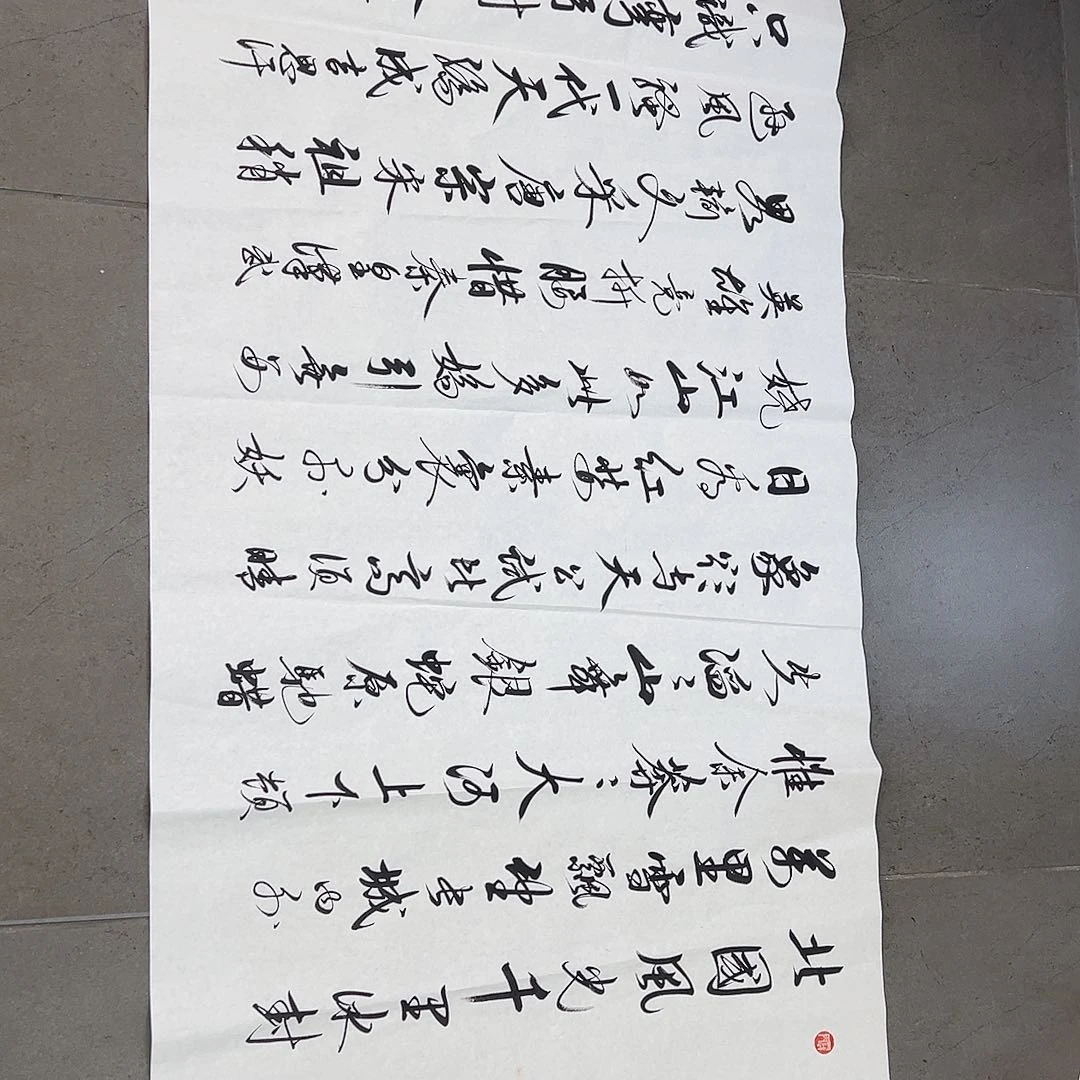 北國風光千里冰封
萬里雪飄望長城内外
惟余莽々大河上下頓
失滔々山舞銀蛇原馳蜡
象欲与天公試比高須晴
日看紅裝素裹分外妖
嬈江山如此多嬌引無數
英雄竞折腰惜秦皇漢武
畧輸文采唐宗宋祖稍
遜風騷一代天驕成吉思汗
只識彎弓射